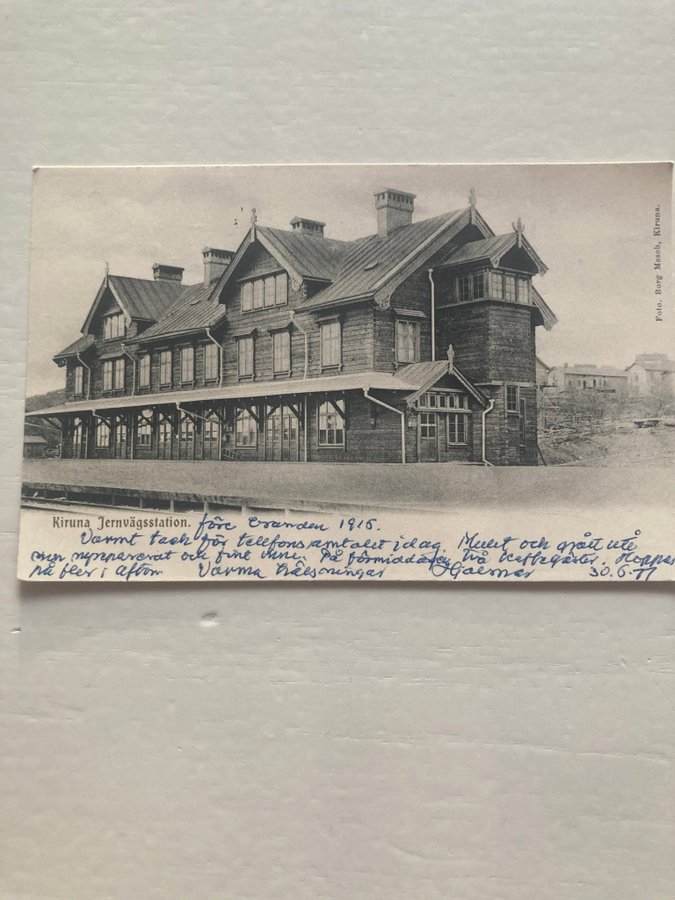 Foto. Borg Mesch, Kiruna.
Kiruna Jernvägsstation. före branden 1915.
Varmt tack för telefonsamtalet idag. Mulet och grått ute
men och fint inne. På förmiddagen två . Hoppas
på fler i afton Varma hälsningar Hjalmar 30.6.77